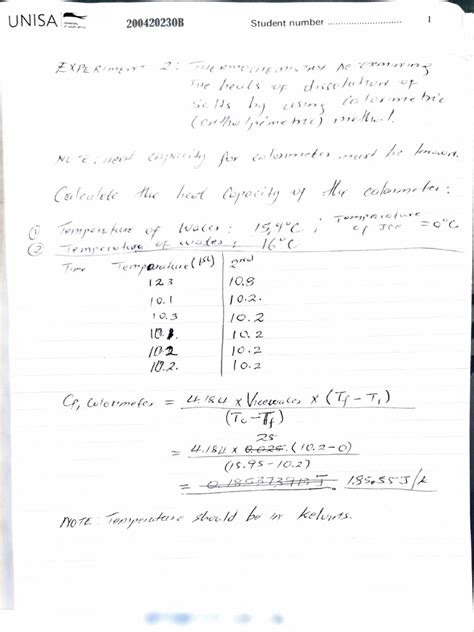 UNISA 200420230B Student number .................... 1
EXPERIMENT 2: THERMOCHEMISTRY DETERMINING
THE heats of dissolution of
salts by using calorimetric
(enthalpimetric) method.
NOTE: Heat capacity for calorimeter must be known.
Calculate the heat capacity of the calorimeter:
① Temperature of Water: 15,9°C ; Temperature of Ice = 0°C
② Temperature of water: 16°C
Time Temperature (1st) 2nd
12.3 10.8
10.1 10.2.
10.3 10.2
10.2
10.2 10.2
10.2. 10.2
Cp, Calorimeter = 4.184 x Vicewater x (Tf - Ti)
(Tc - Tf)
25
= 4.184 x 0.025. (10.2-0)
(15.95 - 10.2)
= 185.55 J/K
NOTE: Temperature should be in Kelvins.